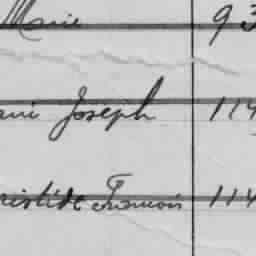 Marie 93
Joseph 114
ristide François 114